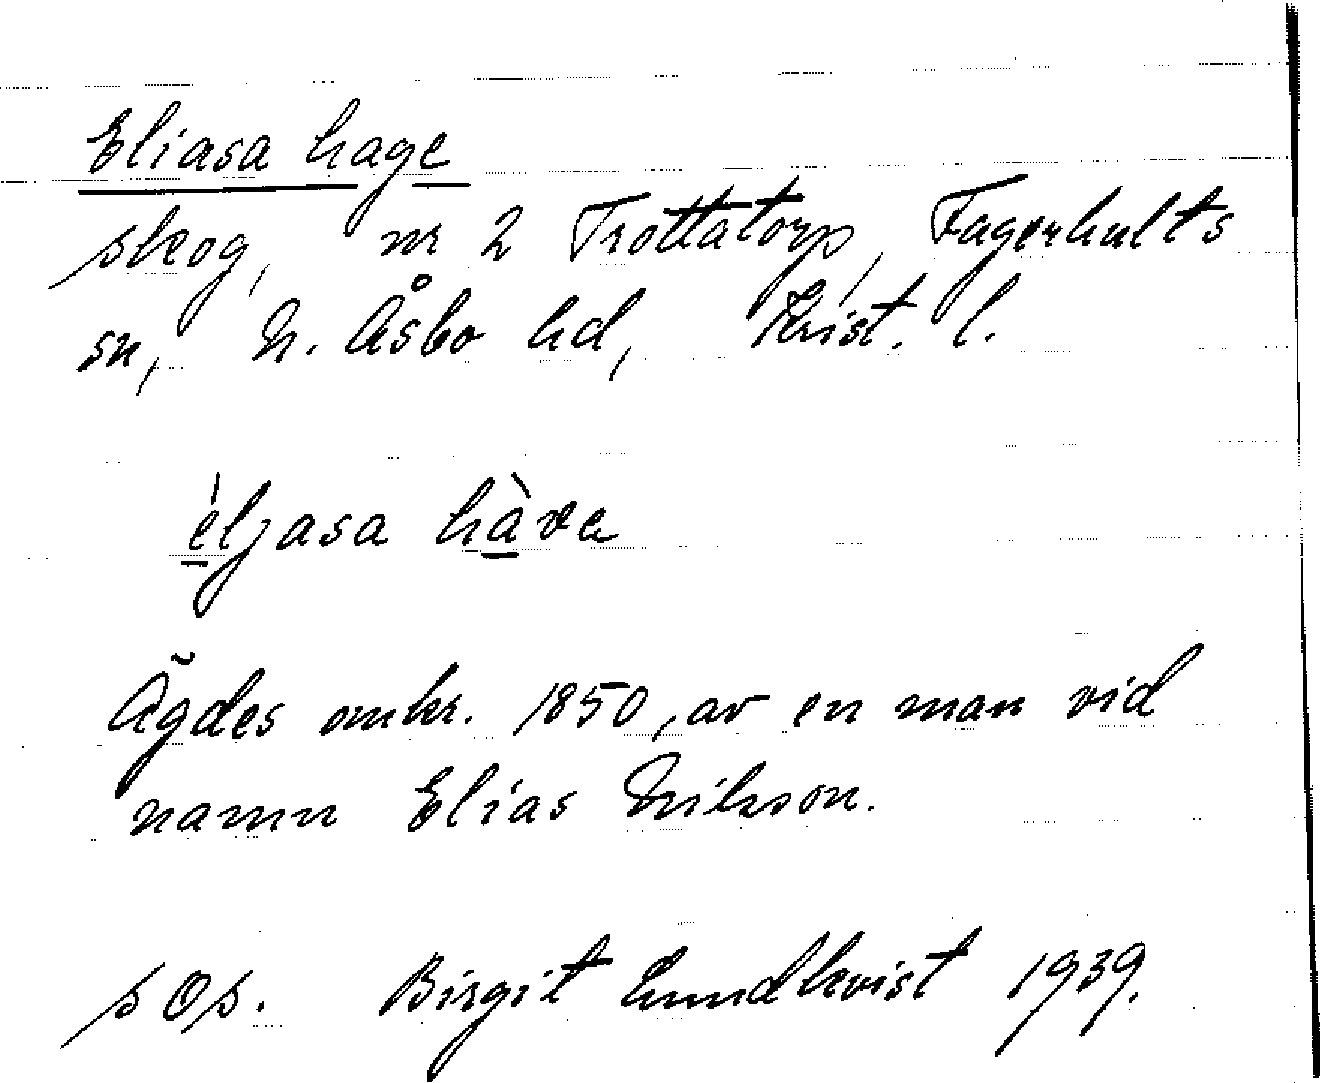 Eliasa hage
skog, nr 2 Trottatorp, Fagerhults
sn, N. Åsbo hd, Krist. l.
èljasa hàva
Ägdes omkr. 1850, av en man vid
namn Elias Nilsson.
s Os. Birgit Lundkvist 1939.